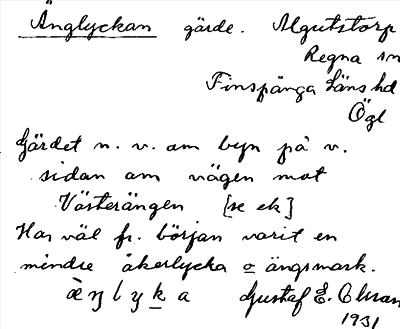 Änglyckan gärde. Algutstorp
Regna sn
Finspånga läns hd
Ögl
Gärdet n. v. om byn på v.
sidan om vägen mot
Västerängen [se ek]
Har väl fr. början varit en
mindre åkerlycka o ängsmark.
Gustaf E.
1931